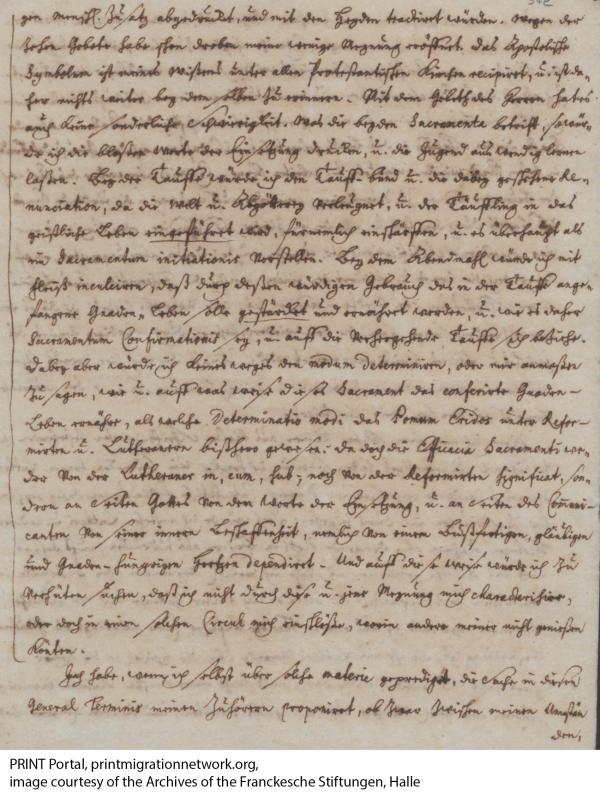 gen menschl. Zusatz abgedruckt, und mit den Heyden tractiret würden. Wegen der
Zehen Gebote habe schon droben meine wenige Meynung eröffnet. Das Apostolische
Symbolum ist meines Wißens unter allen Protestantischen Kirchen recipiret, u. ist da-
her nichts weiter bey demselben zu erinnern. Mit dem Gebeth des Herren hat es
auch keine sonderliche Schwierigkeit. Was die beyden Sacramenta betrift, so wür-
de ich die bloßen Worte der Einsetzung drucken, u. die Jugend auswendig lernen
laßen. Bey der Tauffe würde ich den Tauff-bund u. die dabey geschehene Re-
nunciation, da die Welt u. verleugnet, u. der Täuffling in das
geistliche Leben eingeführet wird, fürnemlich einschärffen, u. es überhaupt als
ein Sacramentum initiationis vorstellen. Bey dem Abendmahl würde ich mit
fleiß inculciren, daß durch deßen würdigen Gebrauch das in der Tauffe ange-
fangene Gnaden-Leben solle gestärcket und ernähret werden, u. wie es daher
Sacramentum Confirmationis sey, u. auff die vorhergehende Tauffe sich beziehe.
Dabey aber würde ich keines weges den modum determiniren, oder mir anmaßen
zu sagen, wie u. auff was weise dieses Sacrament das conferirte Gnaden-
Leben ernähre, als welche Determinatio modi das Pomum Eridos unter Refor-
mirten u. Lutheranern bißhero gewesen; da doch die Efficacia Sacramenti we-
der von der Lutheraner in, cum, sub; noch von der Reformirten significat, son-
dern an seiten Gottes von den Worte der Einsetzung, u. an seiten des Communi-
canten von seiner innern Beschaffenheit, nemlich von einem bußfertigen, gläubigen
und Gnaden-hungrigen Hertzen dependiret. Und auff diese weise würde ich zu
verhüten suchen, daß ich nicht durch diese u. jene Meynung mich characterisire,
oder doch in einen solchen Circul mich einschließe, worin andere meiner nicht genießen
könten.
Ich habe, wenn ich selbst über solche materie geprediget, die Sache in diesen
General Terminis meinen Zuhörern proponiret, ob zwar zwischen meinen
den,
PRINT Portal, printmigrationnetwork.org,
image courtesy of the Archives of the Franckesche Stiftungen, Halle